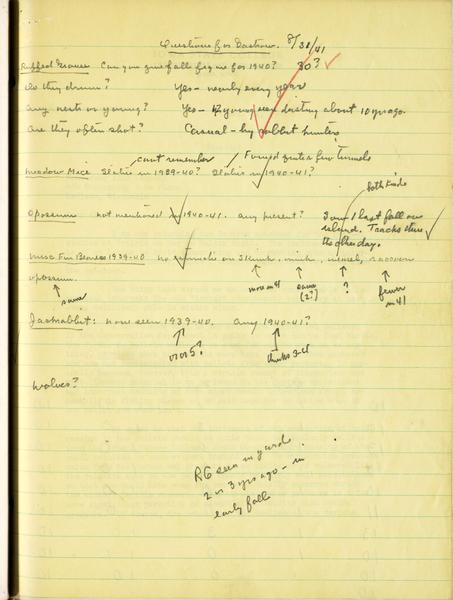 Questions for Dastrow. 8/30/41
Ruffed Grouse Can you give fall figure for 1940? 30?
Do they drum? Yes - nearly every year
Any nests or young? Yes - young seen dusting about 10 yrs ago.
Are they often shot? Casual - by rabbit hunters
can't remember / Found quite a few tunnels
Meadow Mice Status in 1939-40? Status in 1940-41?
both kinds
Opossum not mentioned in 1940-41. Any present? Saw 1 last fall on
island. Tracks there
the other day.
Misc Fur Bearers 1939-40 no estimate on skunk, mink, weasel, raccoon
opossum.
same
more in 41
same
(2?)
?
fewer
in 41
Jackrabbit: none seen 1939-40. Any 1940-41?
thinks 3-4
Wolves?
RG seen in yards
2 or 3 yrs ago - in
early fall